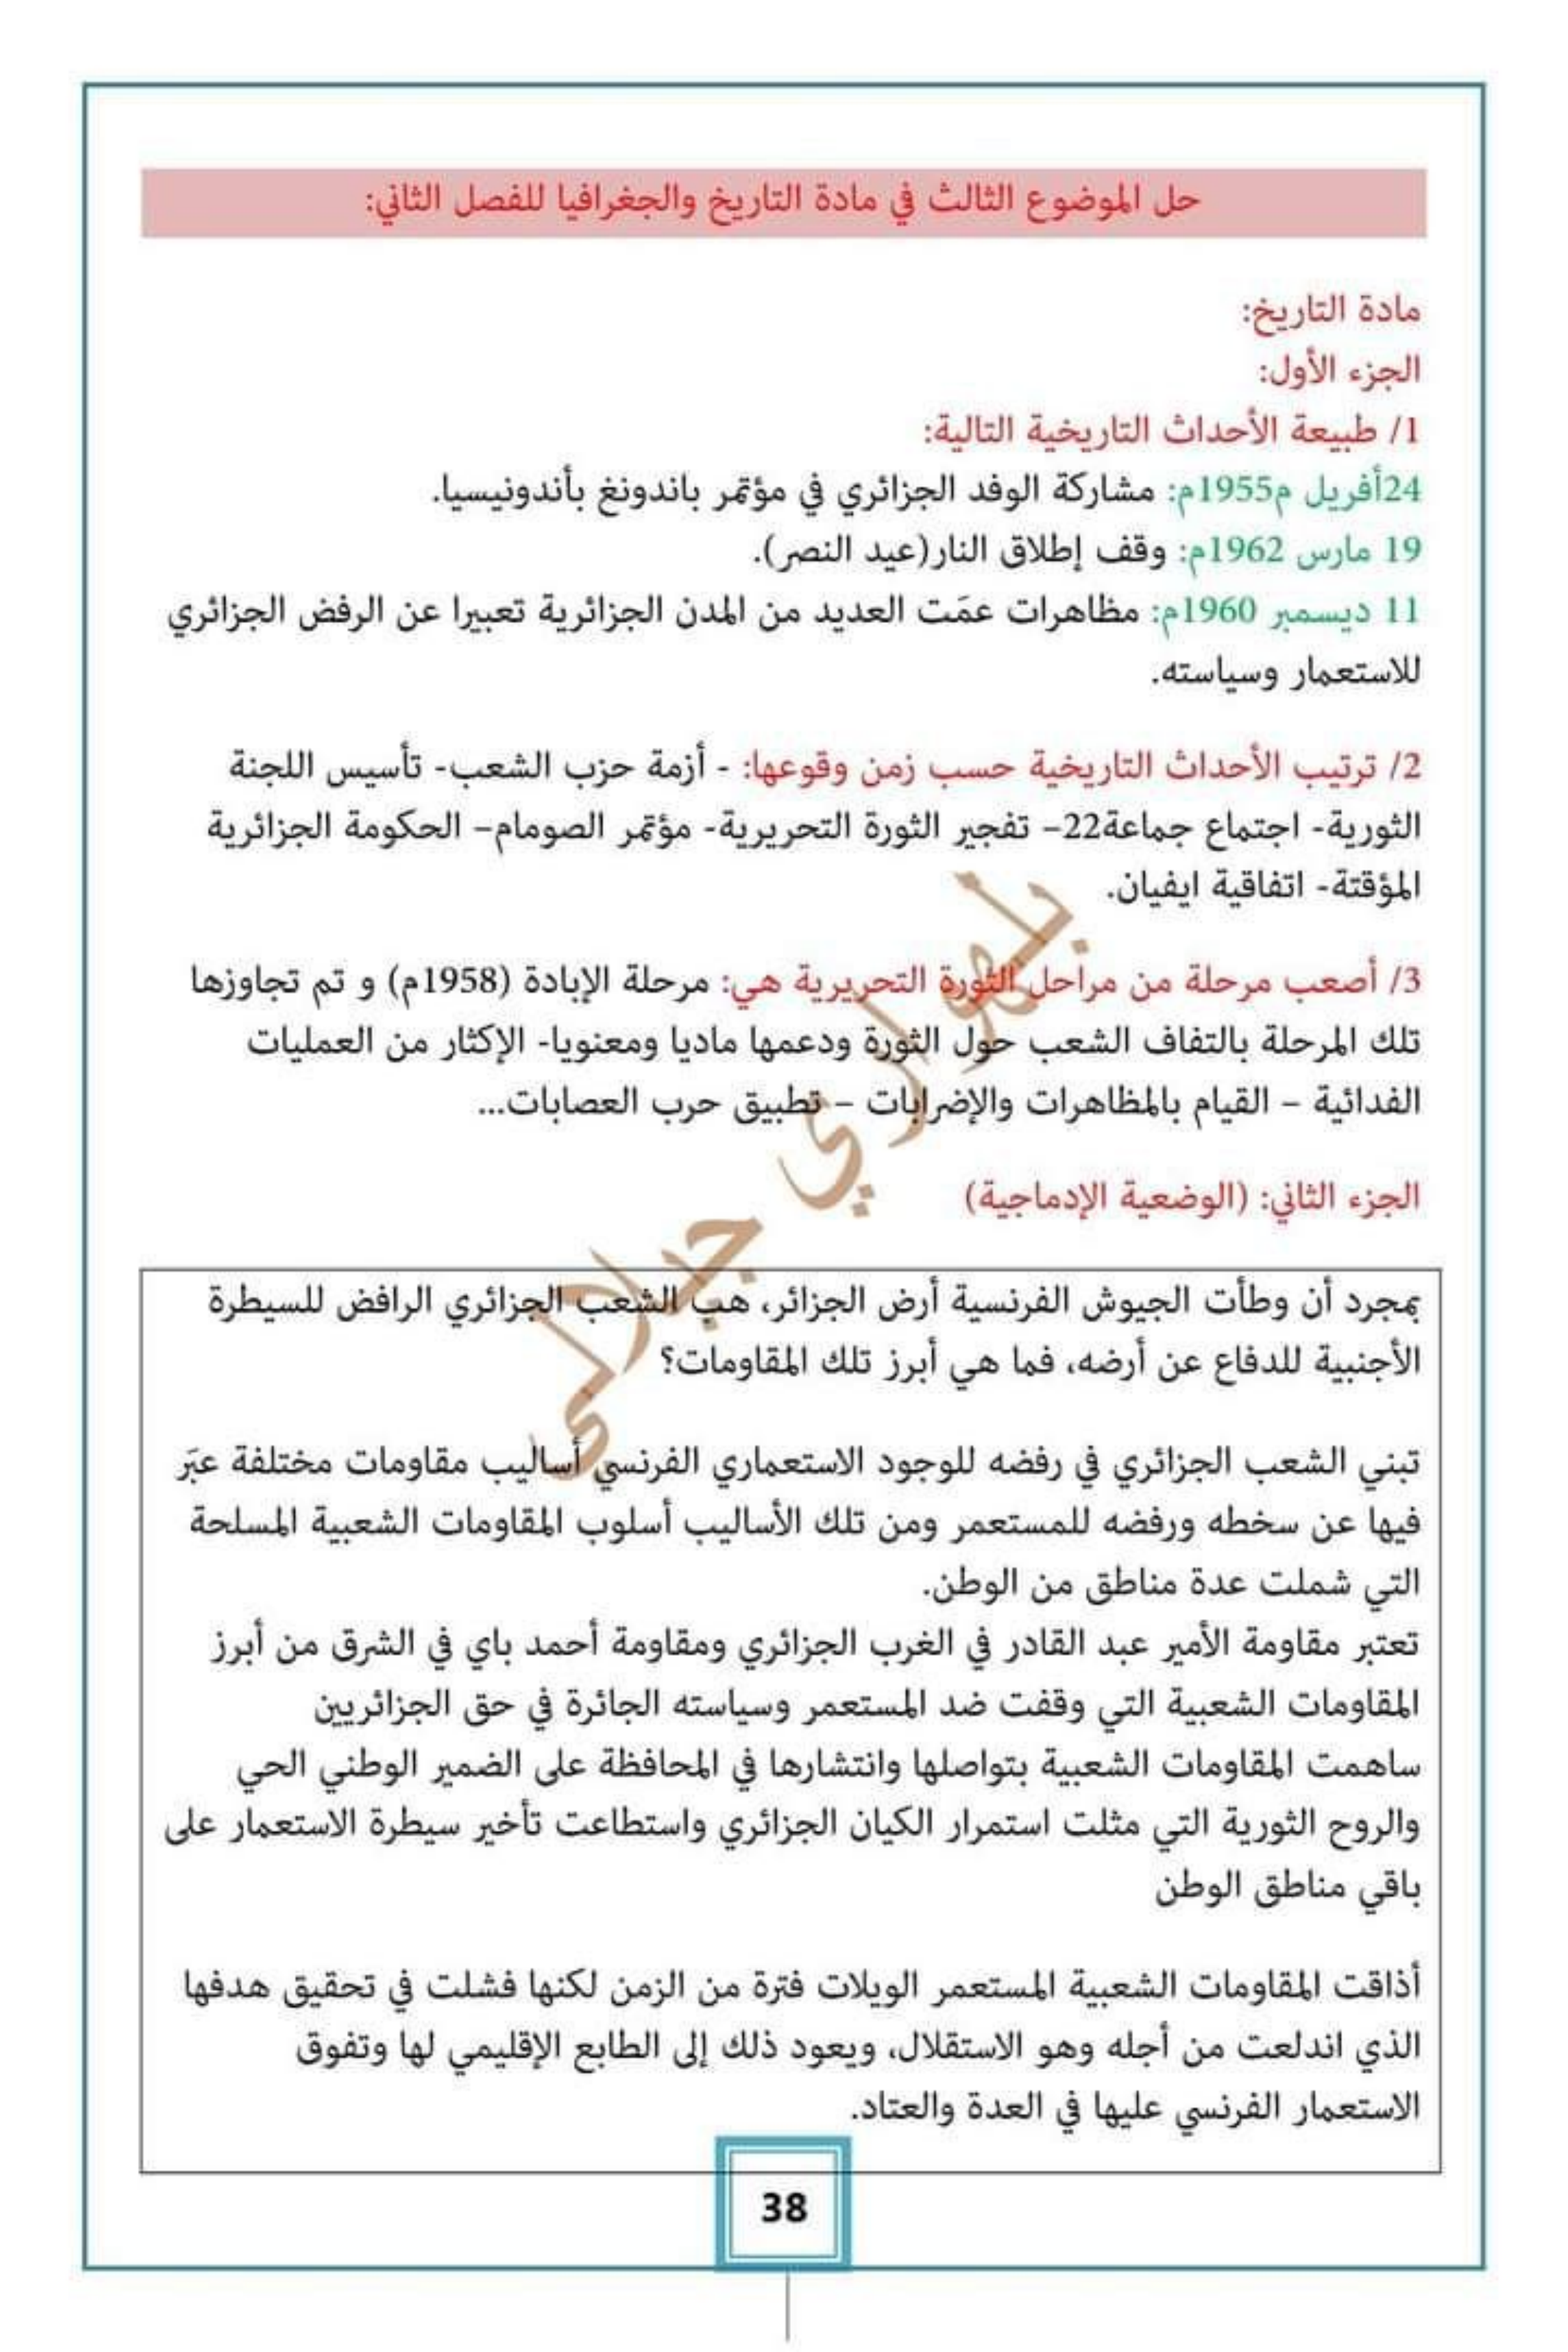 حل الموضوع الثالث في مادة التاريخ والجغرافيا للفصل الثاني:
مادة التاريخ:
الجزء الأول:
1/ طبيعة الأحداث التاريخية التالية:
24أفريل م1955م: مشاركة الوفد الجزائري في مؤتمر باندونغ بأندونيسيا.
19 مارس 1962م: وقف إطلاق النار(عيد النصر).
11 ديسمبر 1960م: مظاهرات عمَت العديد من المدن الجزائرية تعبيرا عن الرفض الجزائري
للاستعمار وسياسته.
2/ ترتيب الأحداث التاريخية حسب زمن وقوعها: - أزمة حزب الشعب- تأسيس اللجنة
الثورية- اجتماع جماعة22– تفجير الثورة التحريرية- مؤتمر الصومام– الحكومة الجزائرية
المؤقتة- اتفاقية ايفيان.
3/ أصعب مرحلة من مراحل الثورة التحريرية هي: مرحلة الإبادة (1958م) و تم تجاوزها
تلك المرحلة بالتفاف الشعب حول الثورة ودعمها ماديا ومعنويا- الإكثار من العمليات
الفدائية – القيام بالمظاهرات والإضرابات – تطبيق حرب العصابات...
الجزء الثاني: (الوضعية الإدماجية)
بمجرد أن وطأت الجيوش الفرنسية أرض الجزائر، هب الشعب الجزائري الرافض للسيطرة
الأجنبية للدفاع عن أرضه، فما هي أبرز تلك المقاومات؟
تبني الشعب الجزائري في رفضه للوجود الاستعماري الفرنسي أساليب مقاومات مختلفة عبَر
فيها عن سخطه ورفضه للمستعمر ومن تلك الأساليب أسلوب المقاومات الشعبية المسلحة
التي شملت عدة مناطق من الوطن.
تعتبر مقاومة الأمير عبد القادر في الغرب الجزائري ومقاومة أحمد باي في الشرق من أبرز
المقاومات الشعبية التي وقفت ضد المستعمر وسياسته الجائرة في حق الجزائريين
ساهمت المقاومات الشعبية بتواصلها وانتشارها في المحافظة على الضمير الوطني الحي
والروح الثورية التي مثلت استمرار الكيان الجزائري واستطاعت تأخير سيطرة الاستعمار على
باقي مناطق الوطن
أذاقت المقاومات الشعبية المستعمر الويلات فترة من الزمن لكنها فشلت في تحقيق هدفها
الذي اندلعت من أجله وهو الاستقلال، ويعود ذلك إلى الطابع الإقليمي لها وتفوق
الاستعمار الفرنسي عليها في العدة والعتاد.
38
بلهواري جيلالي